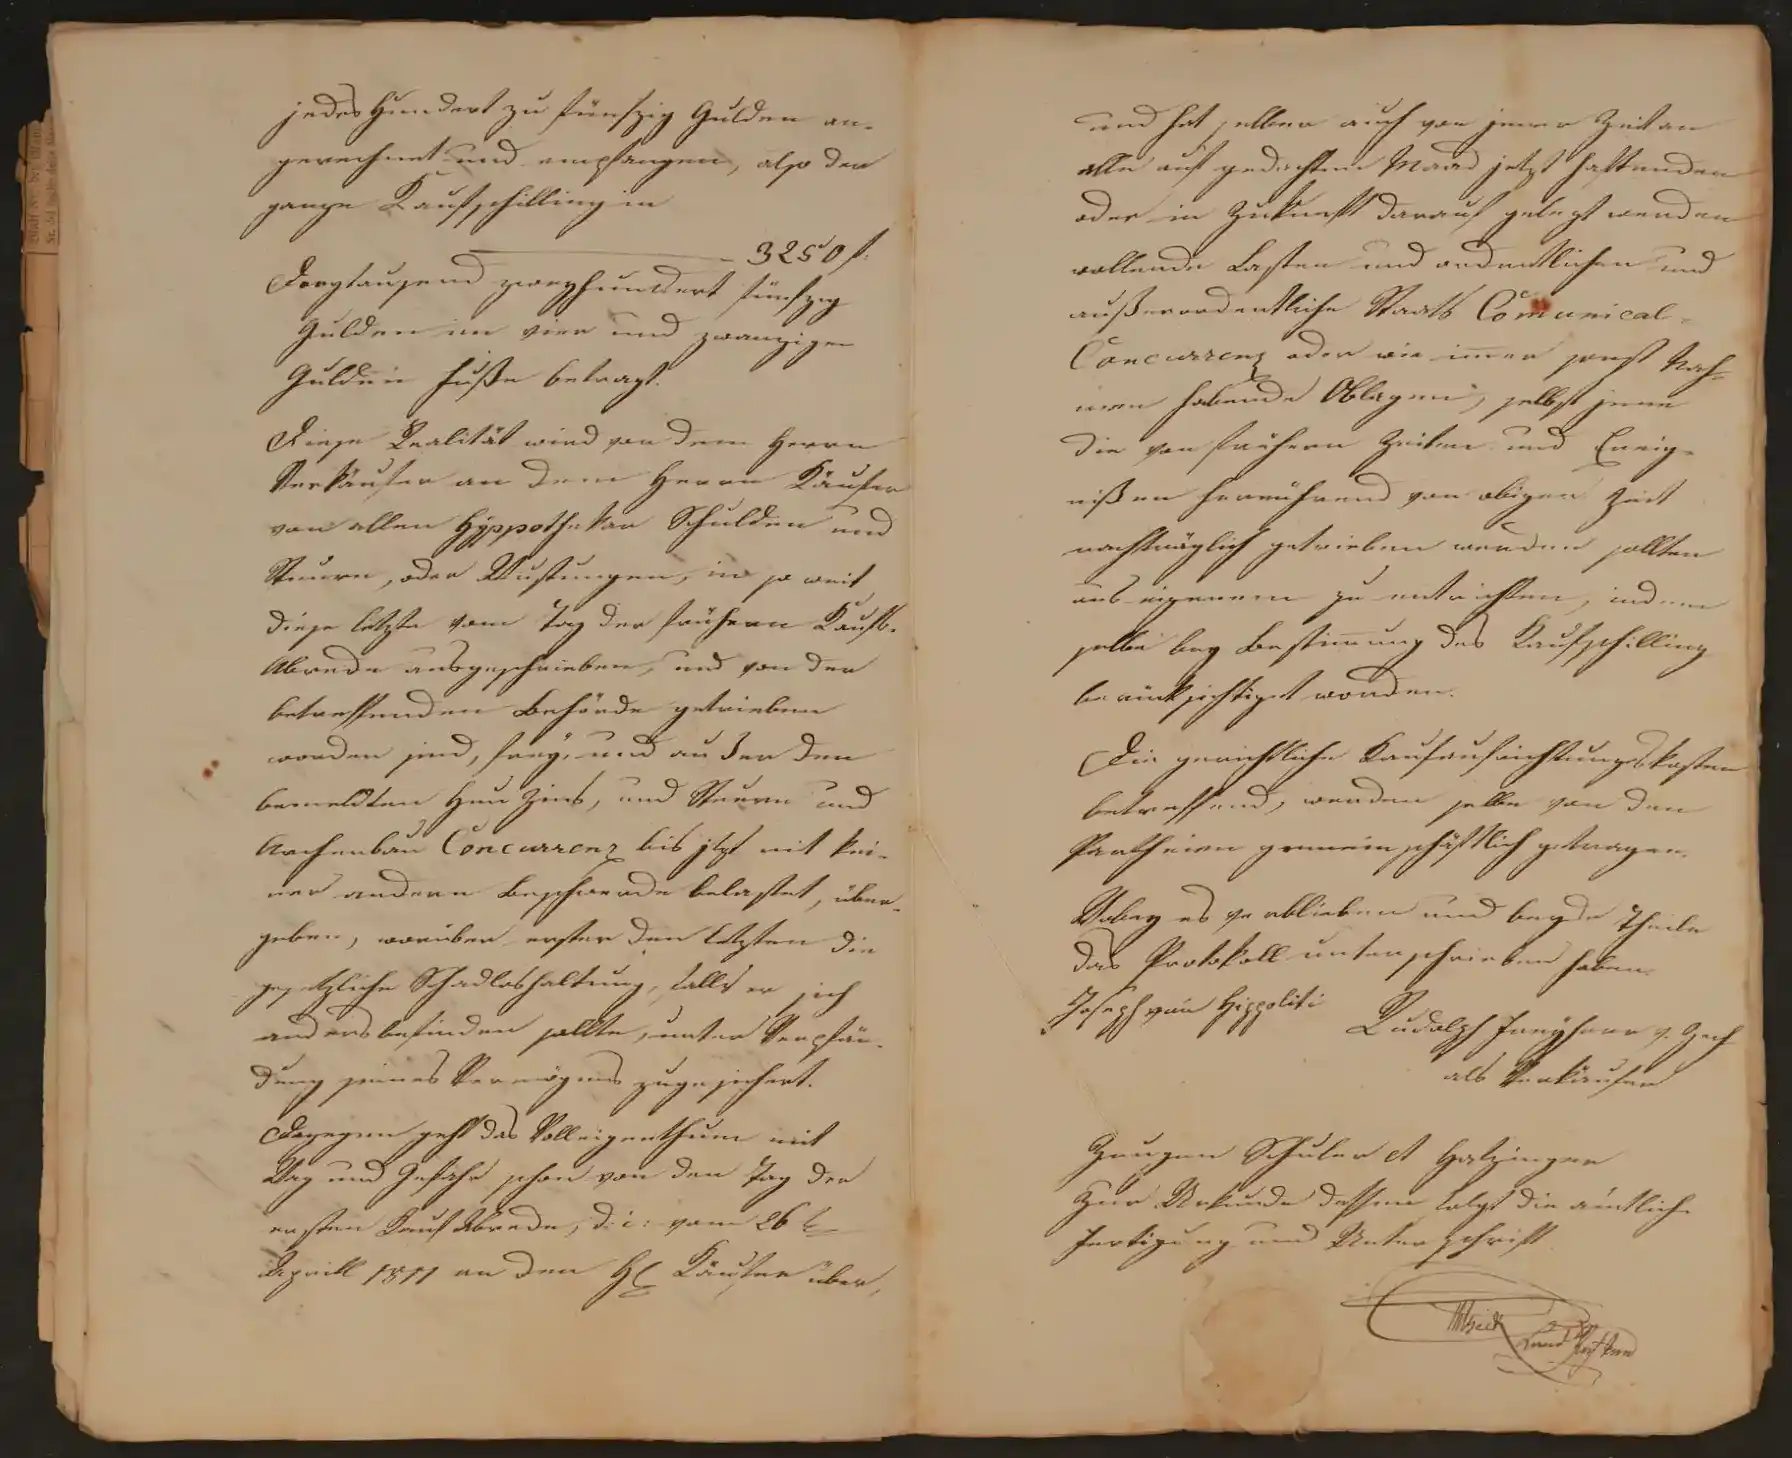 jedes Hundert zu fünfzig Gulden an-
gerechnet und empfangen, also der
ganze Kaufschilling in
3250 f:
Dreytausend zweyhundert fünfzig
Gulden im vier und zwanziger
Gulden Fuße betragt.
Diese Realität wird von dem Herrn
Verkäufer an dem Herrn Käufer
von allen Hyppothekar Schulden und
Steuern, oder Wustungen, in so weit
diese letzte vom Tag der frühern Kaufs-
Abrede ausgeschrieben, und von der
betreffenden Behörde getrieben
worden sind, frey, und außer den
bemeldten Heu Zins, und Steuern und
Archenbau Concurrenz bis jtzt mit kei-
ner andern Beschwerde belastet, über-
geben, worüber erster den letzten die
gesetzliche Schadloshaltung, falls er sich
anders befinden sollte, unter Verpfän-
dung seines Vermögens zugesichert.
Dagegen geht das Volleigenthum mit
Wag und Gefahr schon von den Tag der
ersten Kauf Abrede, d: i: vom 26 t
Aprill 1811 an den H Käufer über,
und hat selber auch von jener Zeit an
alle auf gedachtem Maad jetzt haftenden
oder in Zukunft darauf gelegt werden
wollende Lasten und ordentlichen und
außerordentliche Staats Comunical-
Concurrenz oder wie immer sonst Nah-
men habende Oblagen, selbst jene
die von frühern Zeiten und Ereig-
nißen herrührend von obigen Zeit
nachträglich getrieben werden sollten
aus eigenem zu entrichten, indem
selbe bey Bestimung des Kaufschilling
berücksichtiget worden.
Die gerichtliche Kaufaufrichtungskosten
betreffend, werden selbe von den
Partheien gemeinschäftlich getragen.
Wobey es verblieben und beyde Theile
das Protokoll unterschrieben haben.
Joseph von Hippoliti
Rudolph Freyherr v.
als Verkäufer
Zeugen Schuler et Hatzinger
Zur Urkunde dessen folgt die ämtliche
Fertigung und Unterschrift